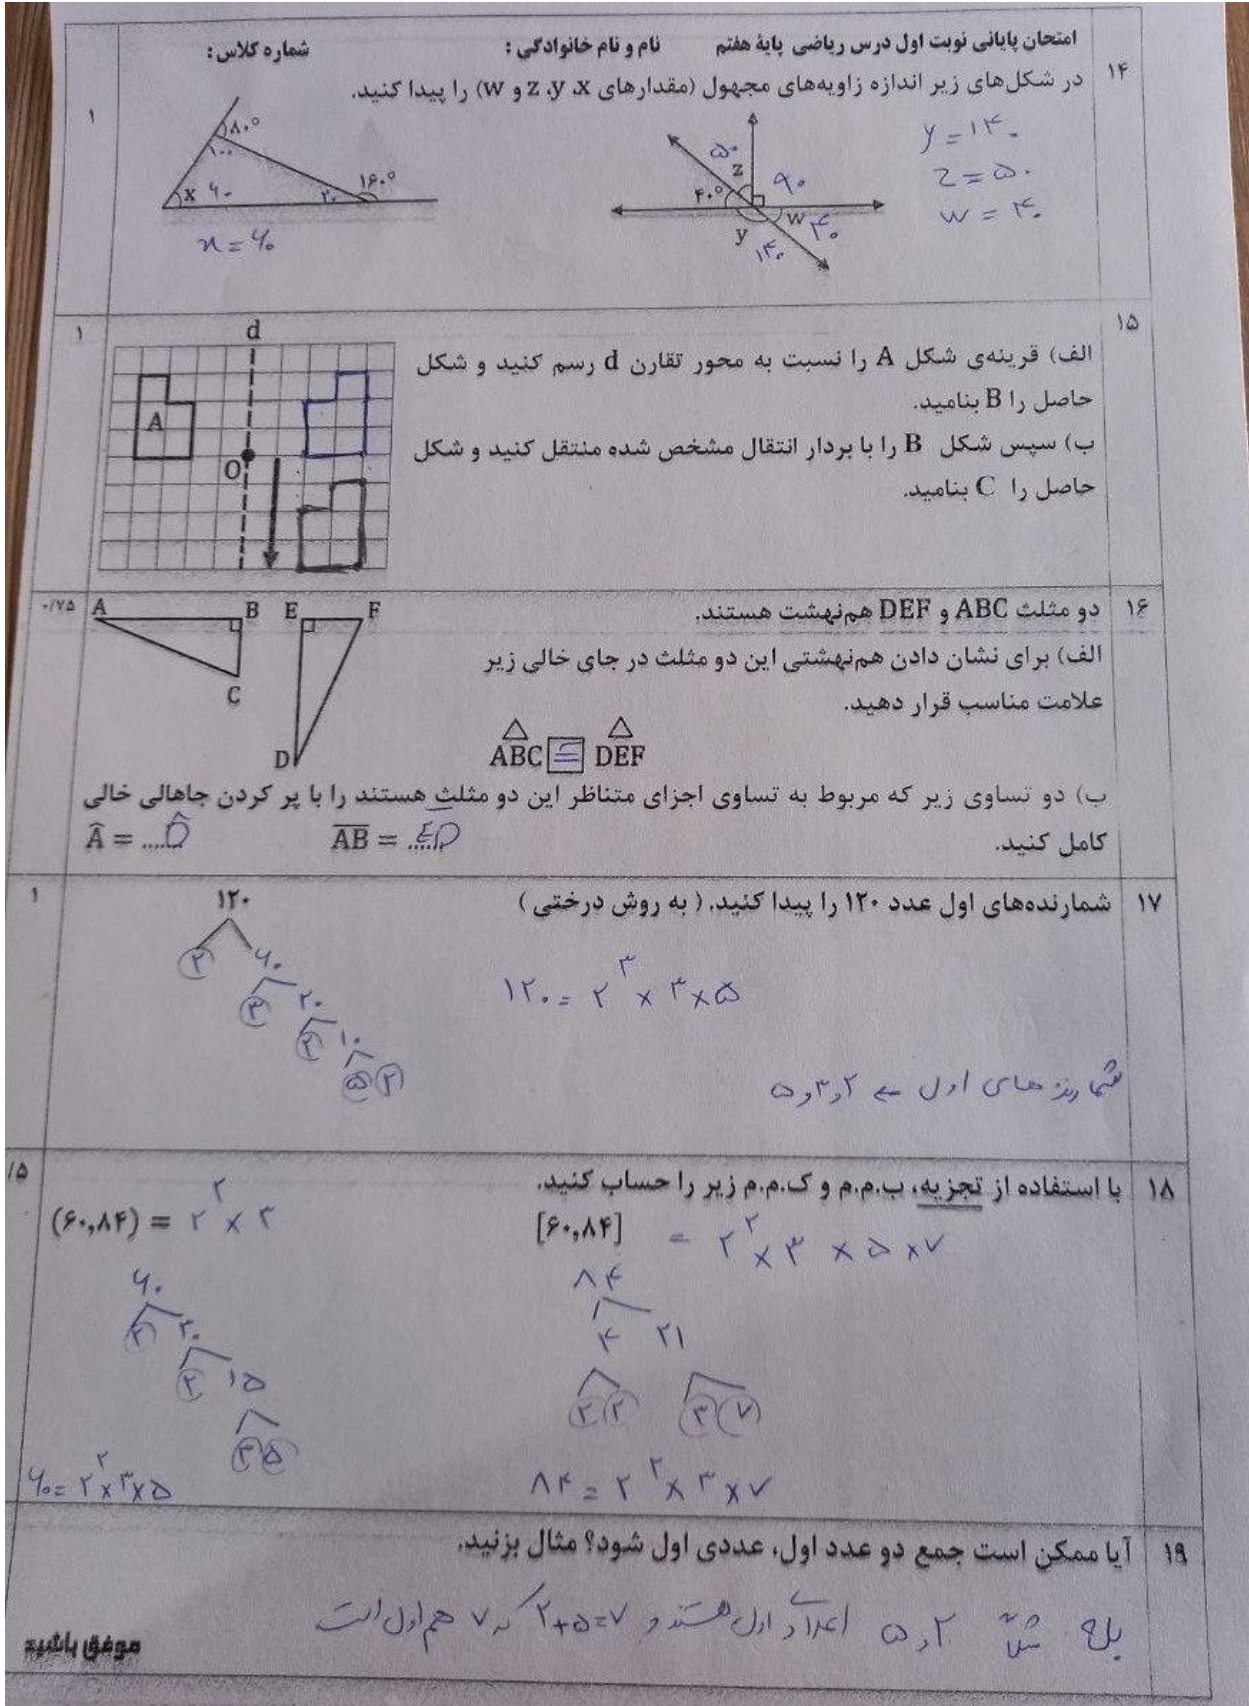 امتحان پایانی نوبت اول درس ریاضی پایهٔ هفتم نام و نام خانوادگی : شماره کلاس :
۱۴ در شکل‌های زیر اندازه زاویه‌های مجهول (مقدارهای x، y، z و w) را پیدا کنید. ۱
۸۰° ۱۰۰ x ۶۰ ۲۰ ۱۶۰°
x = ۶۰
۵۰ z ۹۰ ۴۰° w ۴۰ y ۱۴۰
y = ۱۴۰
z = ۵۰
w = ۴۰
۱۵ ۱
الف) قرینه‌ی شکل A را نسبت به محور تقارن d رسم کنید و شکل
حاصل را B بنامید.
ب) سپس شکل B را با بردار انتقال مشخص شده منتقل کنید و شکل
حاصل را C بنامید.
d
A
O
۱۶ دو مثلث ABC و DEF هم‌نهشت هستند. ۰/۷۵
الف) برای نشان دادن هم‌نهشتی این دو مثلث در جای خالی زیر
علامت مناسب قرار دهید.
A B E F
C
D
ABC ≅ DEF
ب) دو تساوی زیر که مربوط به تساوی اجزای متناظر این دو مثلث هستند را با پر کردن جاهالی خالی
کامل کنید. AB = ..ED.. A = ....D..
۱۷ شمارنده‌های اول عدد ۱۲۰ را پیدا کنید. ( به روش درختی ) ۱
۱۲۰
۲ ۶۰
۳ ۲۰
۲ ۱۰
۵ ۲
۱۲۰ = ۲^۳ × ۳ × ۵
شمارنده های اول ← ۲ و ۳ و ۵
۱۸ با استفاده از تجزیه، ب.م.م و ک.م.م زیر را حساب کنید. /۵
(۶۰,۸۴) = ۲^۲ × ۳ [۶۰,۸۴] = ۲^۲ × ۳ × ۵ × ۷
۶۰
۲ ۳۰
۲ ۱۵
۳ ۵
۶۰ = ۲^۲ × ۳ × ۵
۸۴
۴ ۲۱
۲ ۲ ۳ ۷
۸۴ = ۲^۲ × ۳ × ۷
۱۹ آیا ممکن است جمع دو عدد اول، عددی اول شود؟ مثال بزنید.
بله مثلاً ۲ و ۵ اعداد اول هستند و ۲+۵=۷ که ۷ هم اول است
موفق باشید